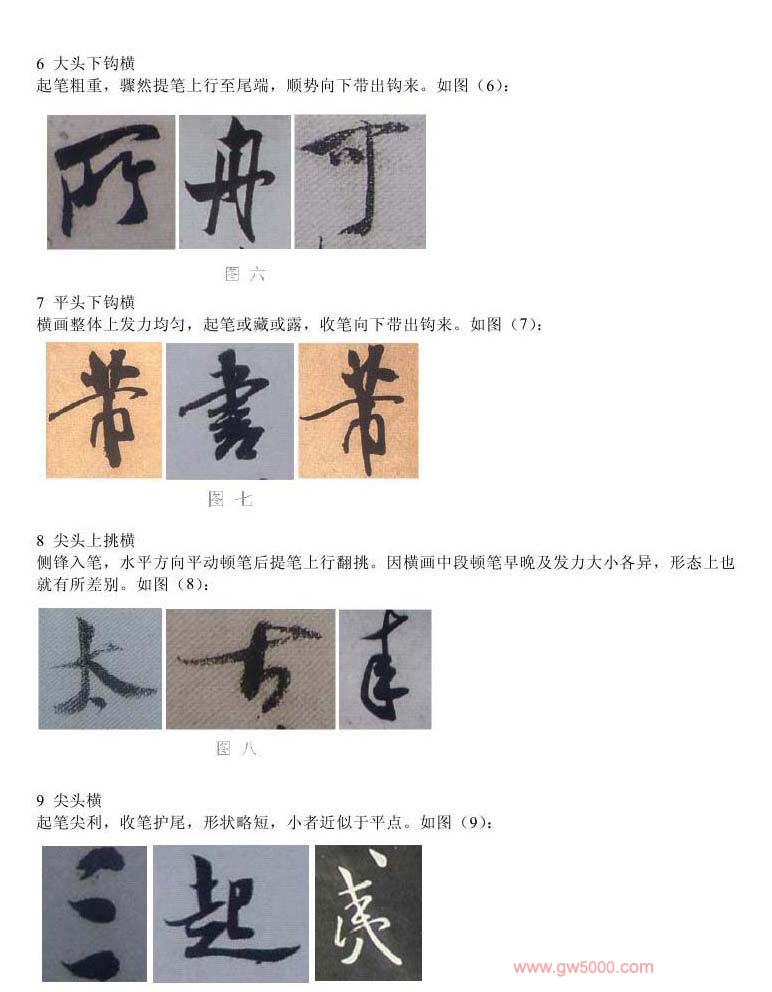 6 大头下钩横
起笔粗重，骤然提笔上行至尾端，顺势向下带出钩来。如图（6）：
所 舟 可
图 六
7 平头下钩横
横画整体上发力均匀，起笔或藏或露，收笔向下带出钩来。如图（7）：
带 書 带
图 七
8 尖头上挑横
侧锋入笔，水平方向平动顿笔后提笔上行翻挑。因横画中段顿笔早晚及发力大小各异，形态上也
就有所差别。如图（8）：
太 古
图 八
9 尖头横
起笔尖利，收笔护尾，形状略短，小者近似于平点。如图（9）：
三 起
www.gw5000.com